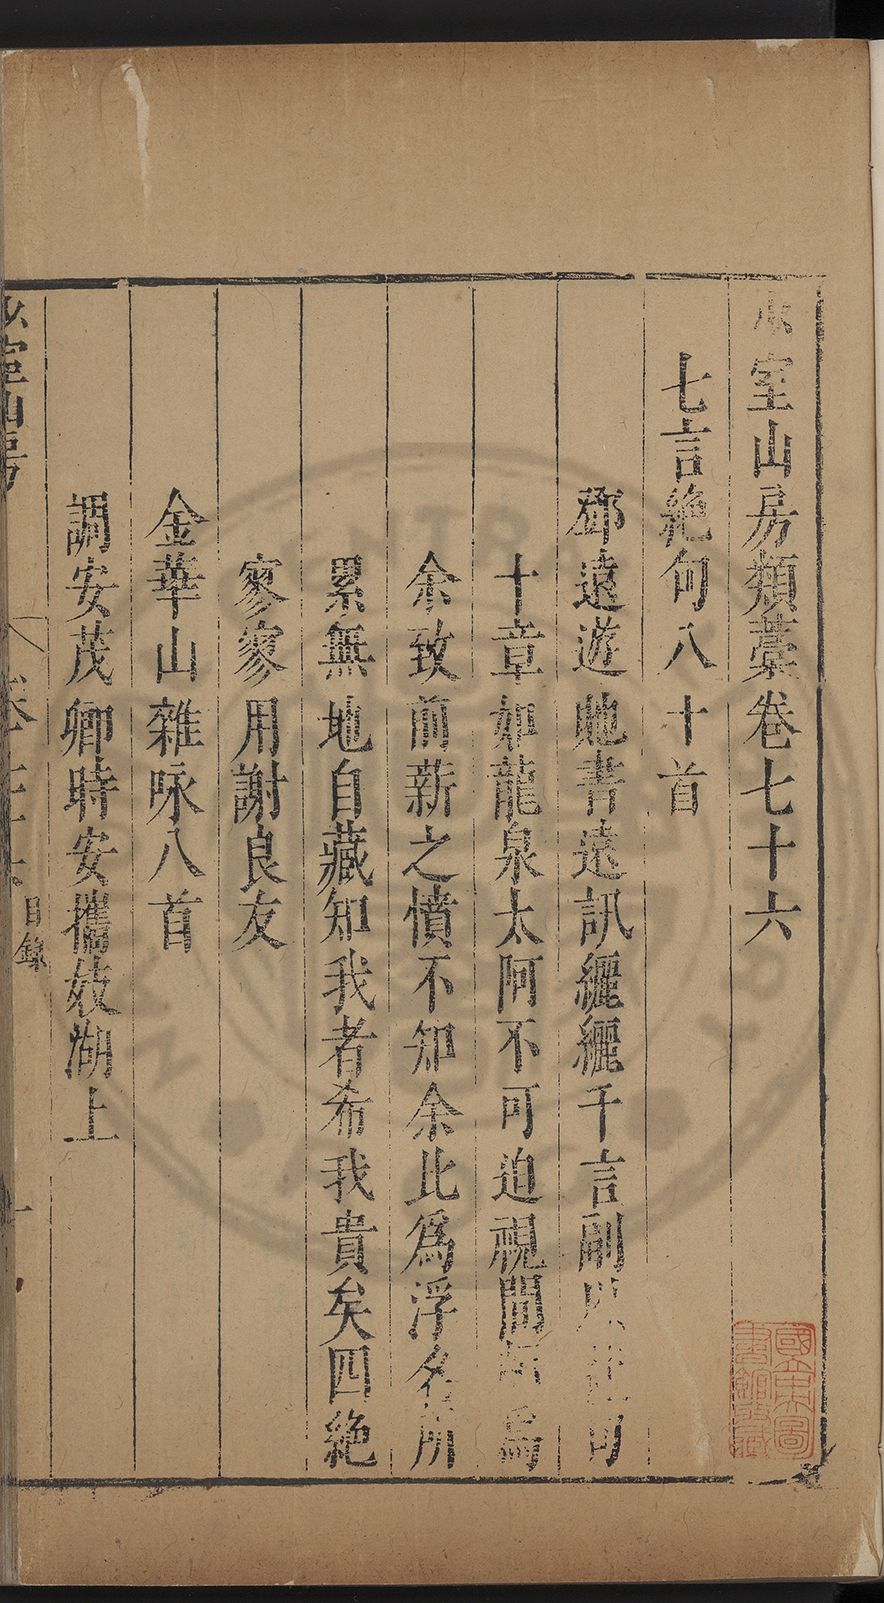 少室山房類藁卷七十六
七言絶句八十首
鄒遠遊貽書遠訊纚纚千言副以
十章如龍泉太阿不可迫視間頗爲
余致前薪之憤不知余此爲浮名所
累無地自藏知我者希我貴矣四絶
寥寥用謝良友
金華山雜咏八首
調安茂卿時安攜妓湖上
少室山房
目錄
國立中央圖書館藏